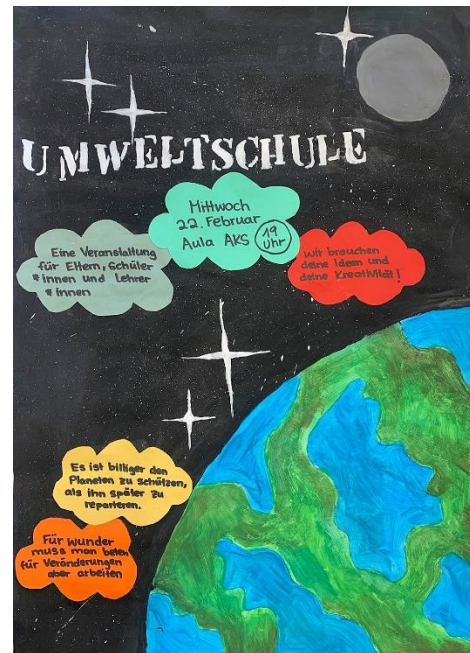 UMWELTSCHULE
Mittwoch
22. Februar
Aula AKS 19
Uhr
Eine Veranstaltung
für Eltern, Schüler
*innen und Lehrer
*innen
Wir brauchen
deine Ideen und
deine Kreativität!
Es ist billiger den
Planeten zu schützen,
als ihn später zu
reparieren.
Für Wunder
muss man beten
für Veränderungen
aber arbeiten